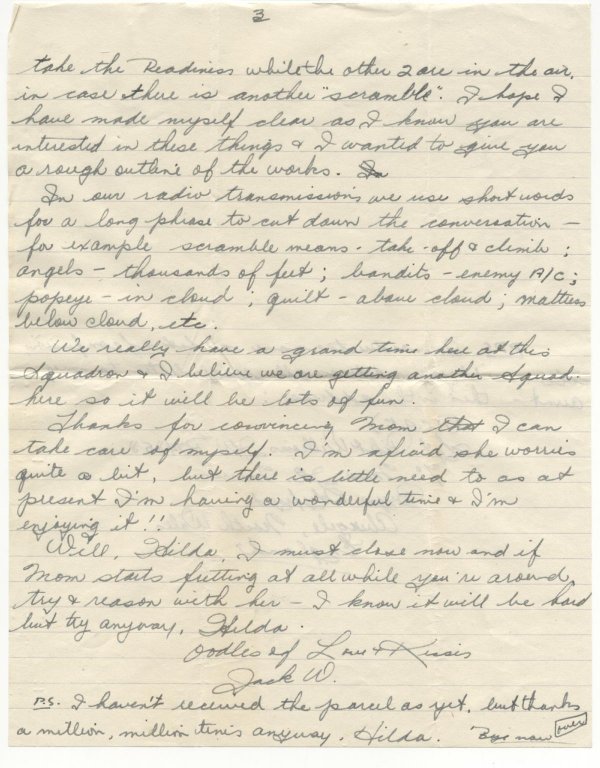 3
take the Readiness while the other 2 are in the air,
in case there is another "scramble". I hope I
have made myself clear as I know you are
interested in these things & I wanted to give you
a rough outline of the works. In
In our radio transmissions we use short words
for a long phrase to cut down the conversation –
for example scramble means - take-off & climb ;
angels – thousands of feet ; bandits – enemy A/C ;
popeye – in cloud ; quilt – above cloud ; mattress
below cloud, etc.
We really have a grand time here at this
Squadron & I believe we are getting another Squad.
here so it will be lots of fun.
Thanks for convincing Mom that I can
take care of myself. I'm afraid she worries
quite a bit, but there is little need to as at
present I'm having a wonderful time & I'm
enjoying it !!
Well, Hilda, I must close now and if
Mom starts fretting at all while you're around,
try & reason with her – I know it will be hard
but try anyway, Hilda.
Oodles of Love & Kisses
Jack W.
P.S. I haven't received the parcel as yet, but thanks
a million, million times anyway, Hilda. Bye now over